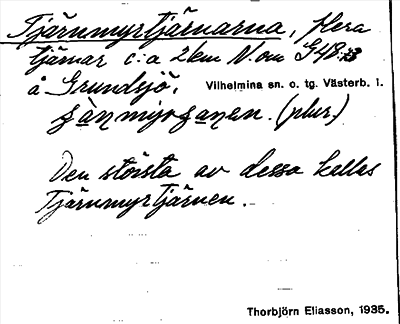 Tjärnmyrtjärnarna, flera
tjärnar c:a 2 km N. om G48:
å Grundsjö, Vilhelmina sn. o. tg. Västerb. l.
(plur.)
Den största av dessa kallas
Tjärnmyrtjärnen.
Thorbjörn Eliasson, 1935.